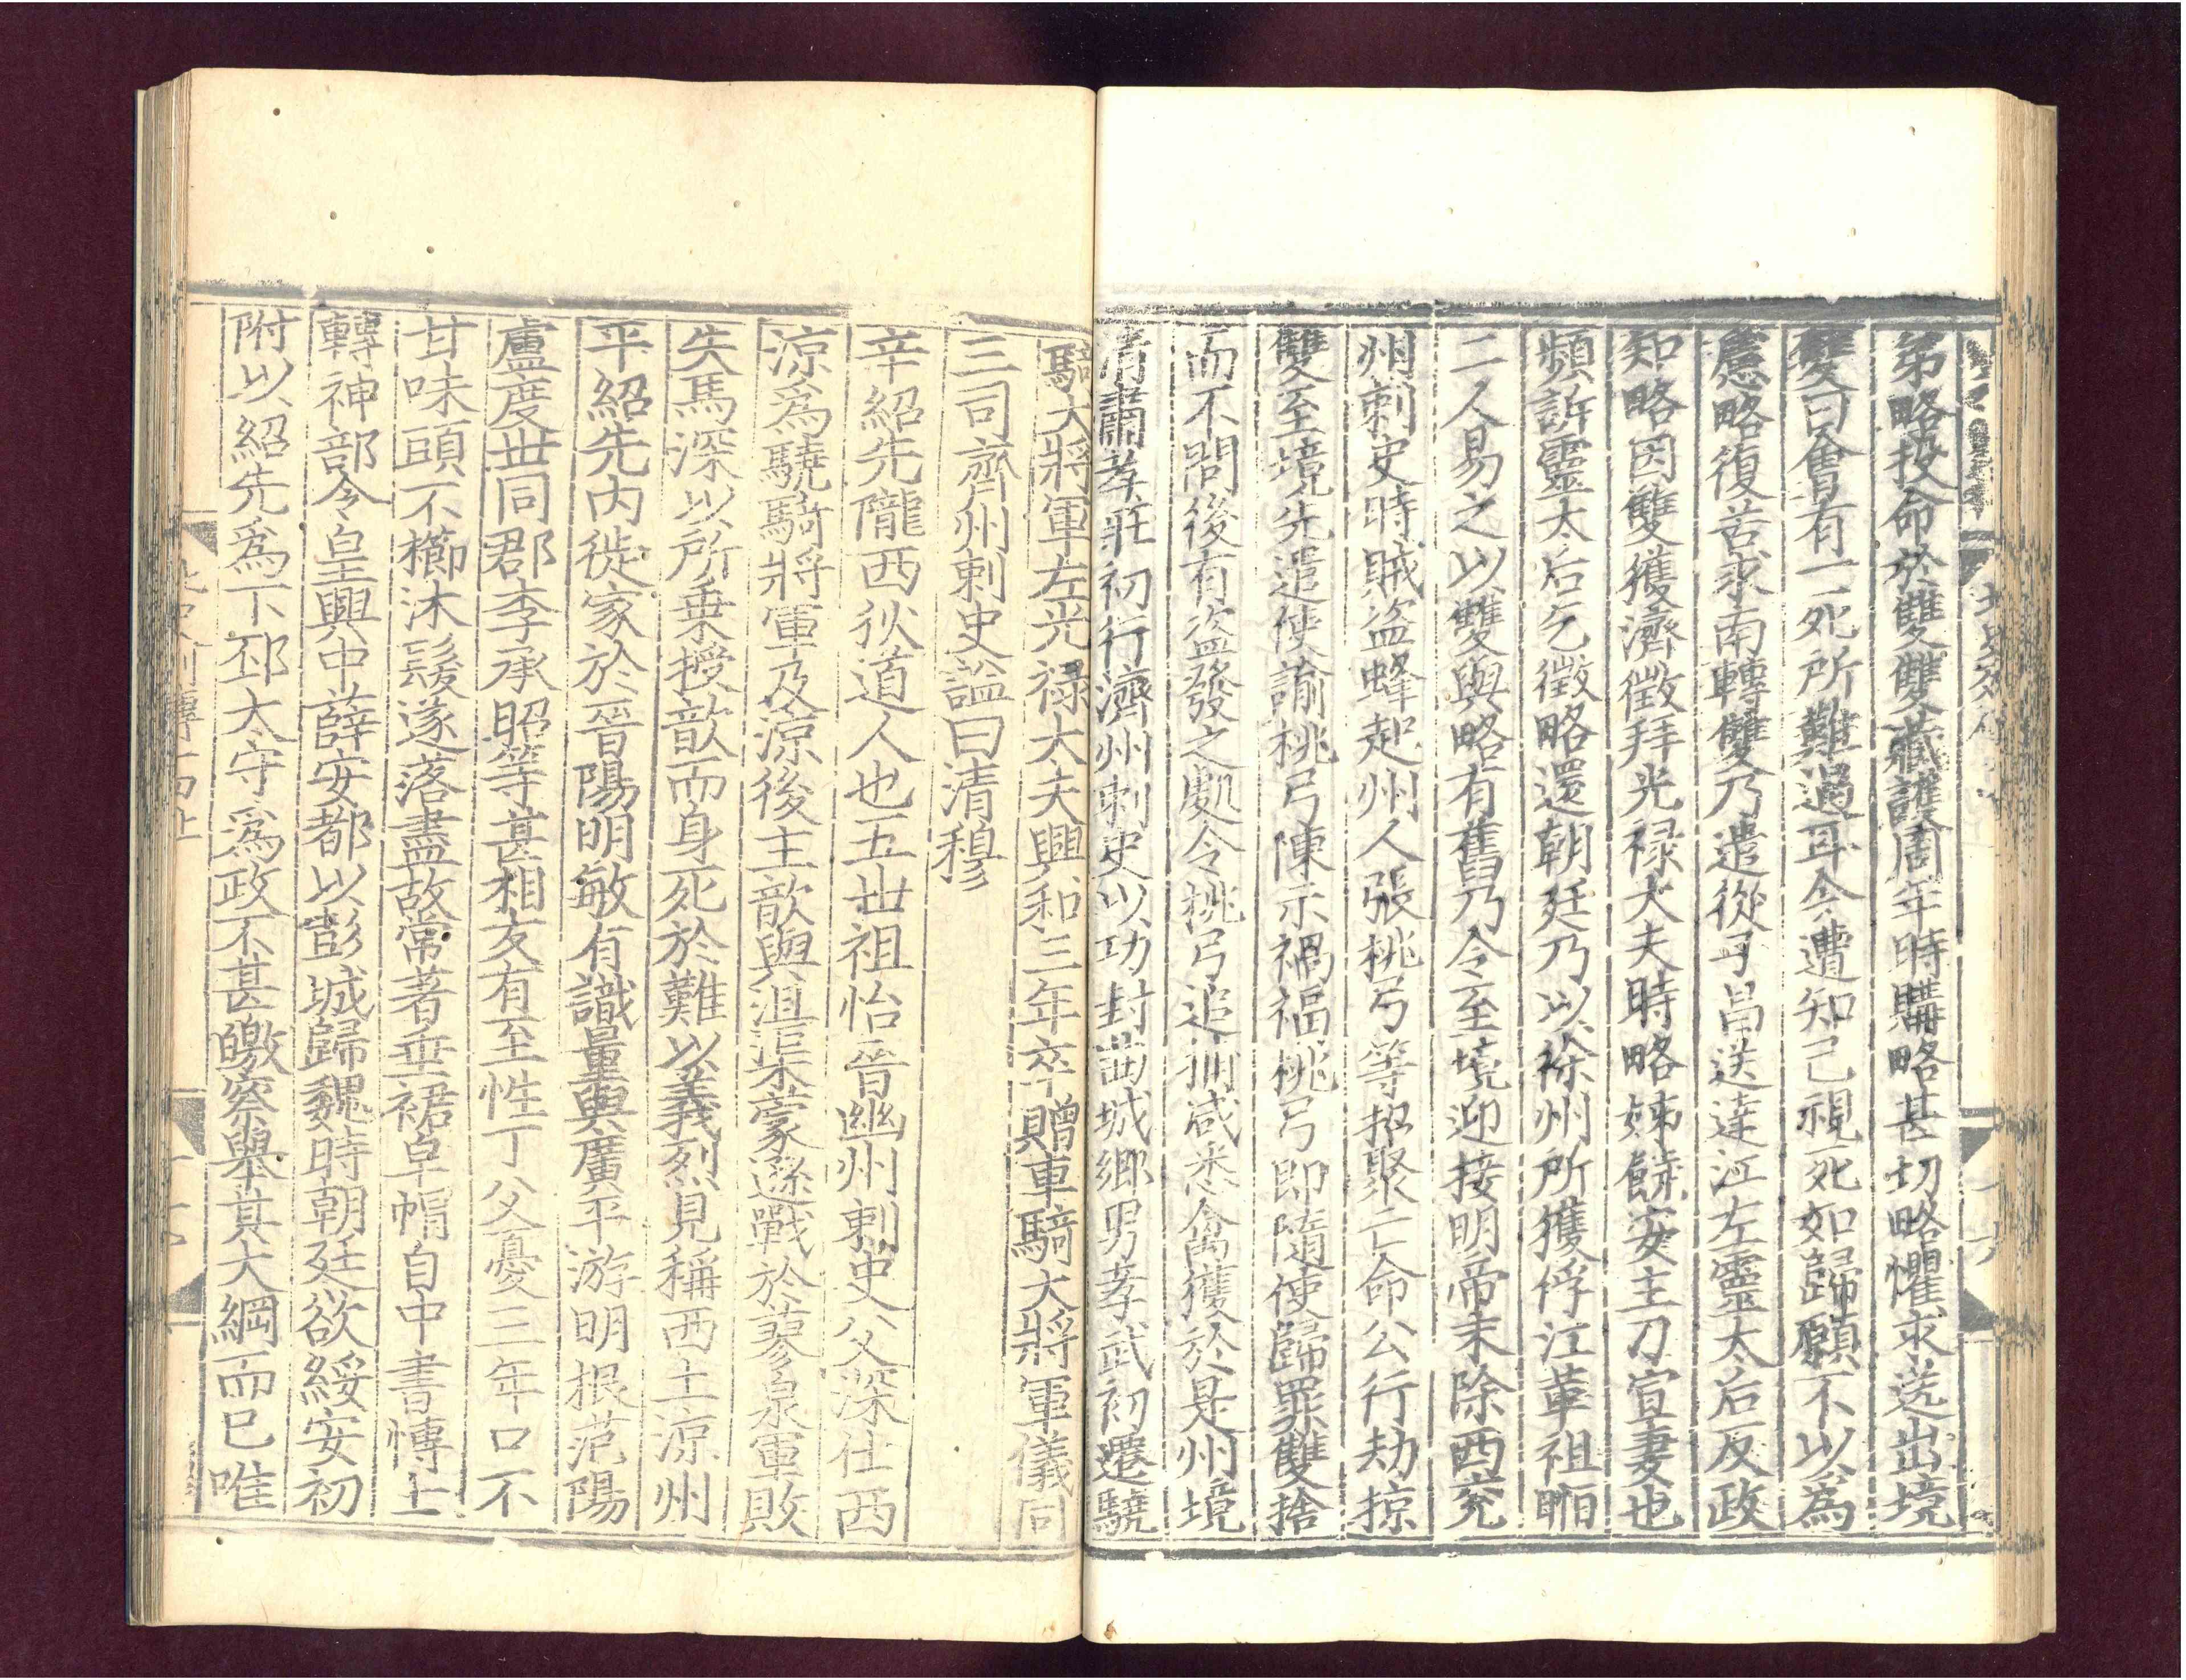 弟略投命於雙雙藏護周年時購略甚切略懼求送出境
雙曰會有一死所難過耳今遭知己視死如歸願不以爲
慮略復苦求南轉雙乃遣從子昌送達江左靈太后反政
知略因雙獲濟徵拜光祿大夫時略姊饒安主刀宣妻也
頻訴靈太后乞徵略還朝廷乃以徐州所獲俘江革祖暅
二人易之以雙與略有舊乃令至境迎接明帝末除西兖
州刺史時賊盜蜂起州人張桃弓等招聚亡命公行劫掠
雙至境先遣使諭桃弓陳示禍福桃弓即隨使歸罪雙捨
而不問後有盜發之處令桃弓追捕咸悉禽獲於是州境
清肅孝莊初行濟州刺史以功封曲城鄉男孝武初遷驍
騎大將軍左光祿大夫興和三年卒贈車騎大將軍儀同
三司齊州刺史謚曰清穆
辛紹先隴西狄道人也五世祖怡晉幽州刺史父深仕西
涼爲驍騎將軍及涼後主歆與沮渠蒙遜戰於蓼泉軍敗
失馬深以所乗授歆而身死於難以義烈見稱西土涼州
平紹先内徙家於晉陽明敏有識量與廣平游明根范陽
盧度世同郡李承昭等甚相友有至性丁父憂三年口不
甘味頭不櫛沐髮遂落盡故常著垂裙皁帽自中書博士
轉神部令皇興中薛安都以彭城歸魏時朝廷欲綏安初
附以紹先爲下邳太守爲政不甚皦察舉其大綱而已唯
北史列傳十四上